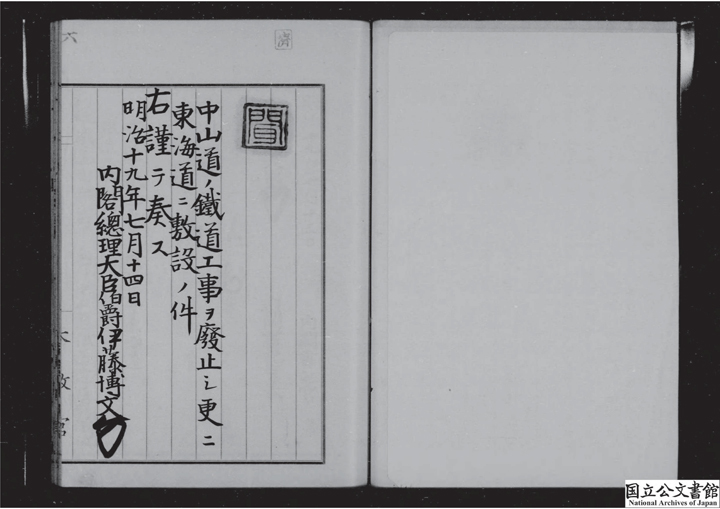 聞
中山道ノ鐵道工事ヲ廢止シ更ニ
東海道ニ敷設ノ件
右謹テ奏ス
明治十九年七月十四日
内閣總理大臣伯爵伊藤博文
六
国立公文書館
National Archives of Japan